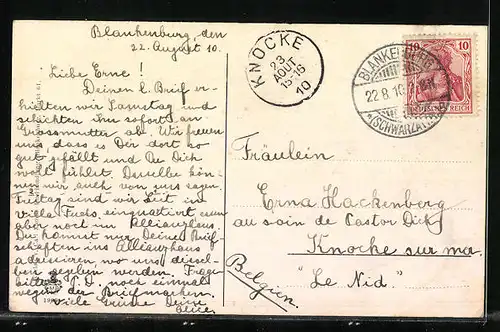 Blankenburg, den
22. August 10.
Liebe Erne!
Deinen l. Brief er-
hielten wir Samstag und
schickten ihn sofort an
Grossmutter ab. Wir freuen
uns, dass es Dir dort so
gut gefällt und Du Dich
wohl fühlst. Dasselbe kön-
nen wir auch von uns sagen.
Freitag sind wir hier in
Villa Fuchs, einquartiert essen
aber noch im Allianzhaus.
Du kannst nur Deine Brief-
schaften ins Allianzhaus
adressieren, wo uns diesel-
ben gegeben werden. Frage
bitte noch einmal
wegen der Briefmarken.
viele Grüsse Deine
KNOCKE
23
AOUT
15-16
10
BLANKENBURG
22.8.10
(SCHWARZATAL)
10 10
DEUTSCHES REICH
Fräulein
Erna Hackenberg
au soin de Pastor Dick
Knocke sur mer
"Le Nid."
Belgien.